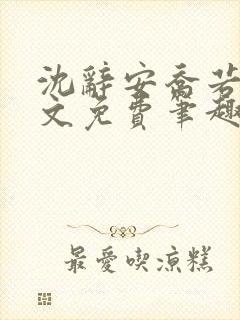 沈辭安喬若
文免費筆趣
最愛喫涼糕